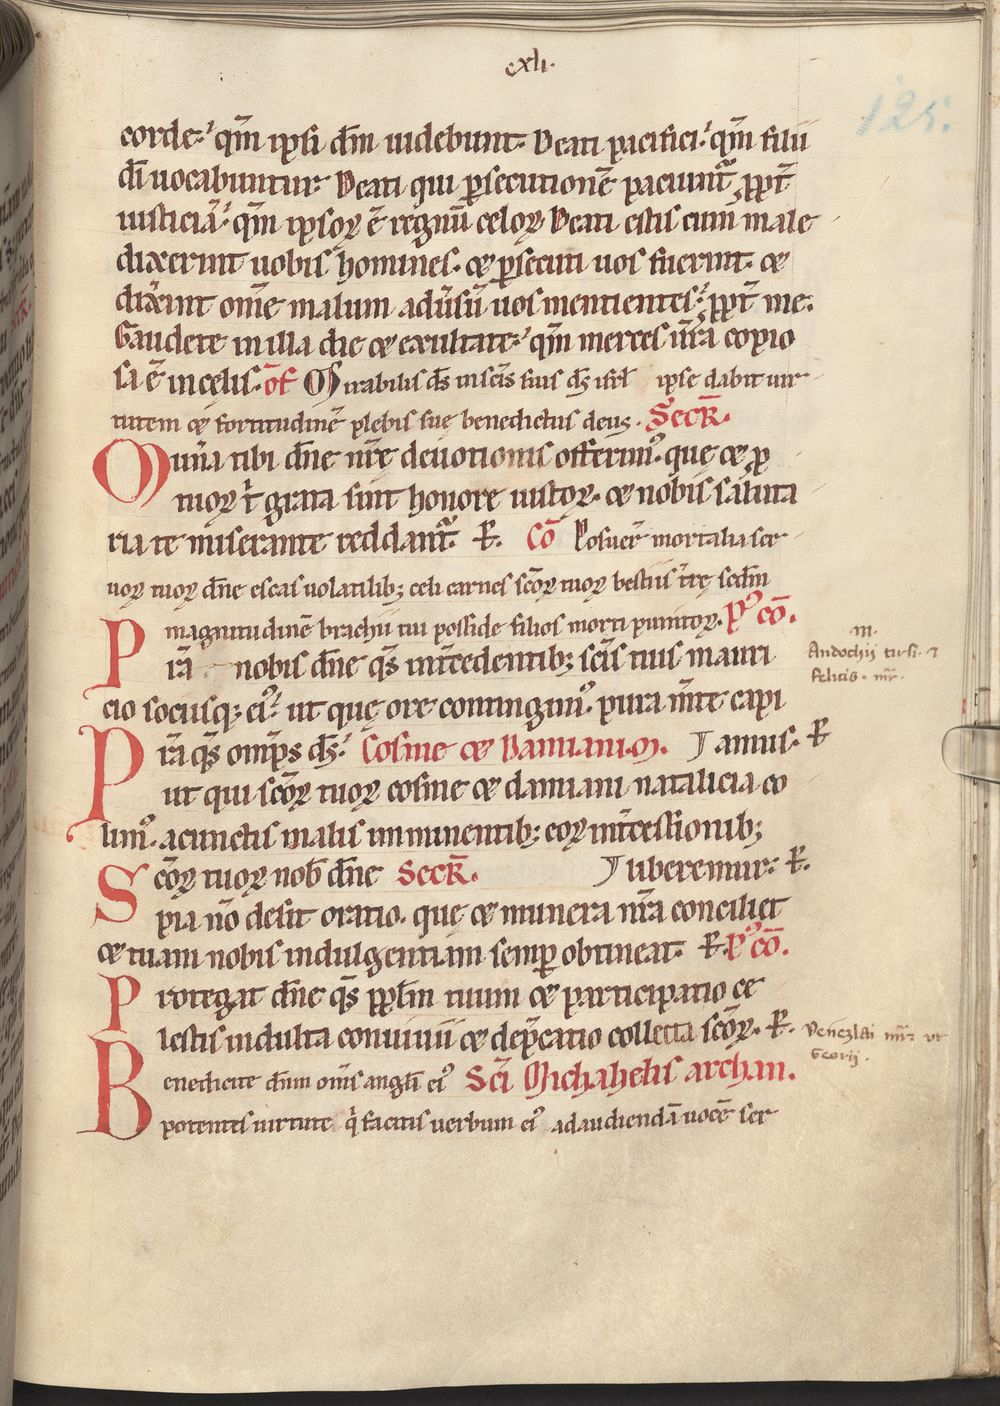 cxli.
125.
corde. qm̄ ipsi dm̄ uidebunt. Beati pacifici. qm̄ filii
dī uocabuntur. Beati qui ꝑsecutionē paciunt̄ ꝓpt̄
iusticiā. qm̄ ipsoꝝ ē regnū celoꝝ Beati estis cum male
dixerint uobis homines. & ꝑsecuti uos fuerint. &
dix̄int om̄e malum adūsū uos mentientes. ꝓpt̄ me.
Gaudete in illa die & exultate. qm̄ merces ur̄a copio
sa ē in celis. of Mirabilis ds̄ in scīs suis ds̄ isrl̄ ipse dabit uir
tutem & fortitudinē plebis suę benedictus deus. Secr̄.
Munera tibi dn̄e nr̄ę deuotionis offerim⁹. que & ꝓ
tuoꝝ t̄ grata sint honore iustoꝝ. & nobis saluta
ria te miserante reddant̄. ꝑ. Cō Posuer̄ mortalia ser
uoꝝ tuoꝝ dn̄e escas uolatilib; celi carnes scōꝝ tuoꝝ bestiis t̄rę scd̄m
magnitudinē brachii tui posside filios morti punitoꝝ. P⁹ cō.
Pra nobis dn̄e qs̄ int̄cedentib; scīs tuis mauri
cio sociisq; ei⁹. ut que ore contingim⁹. pura m̄te capi
am⁹. ꝑ
Pra qs̄ omp̄s ds̄. Cosme & Damiani. M.
ut qui scōꝝ tuoꝝ cosme & damiani natalicia co
lim⁹. a cunctis malis imminentib; eoꝝ int̄cessionib;
liberemur. ꝑ.
Scōꝝ tuoꝝ nob̄ dn̄e Secr̄.
pia nō desit oratio. que & munera nr̄a conciliet
& tuam nobis indulgentiam semꝑ obtineat. ꝑ. P⁹ cō.
Protegat dn̄e qs̄ ppl̄m tuum & participatio ce
lestis indulta conuiuii & dep̄catio collecta scōꝝ. ꝑ.
Benedicite dn̄um om̄s angl̄i ei⁹ Scī Michahelis archan.
potentes uirtute q̄ facitis uerbum ei⁹ ad audiendā uocē ser
m.
Andochii tirsi. ⁊
felicis. mr̄.
Venezlai mr̄
Georii.